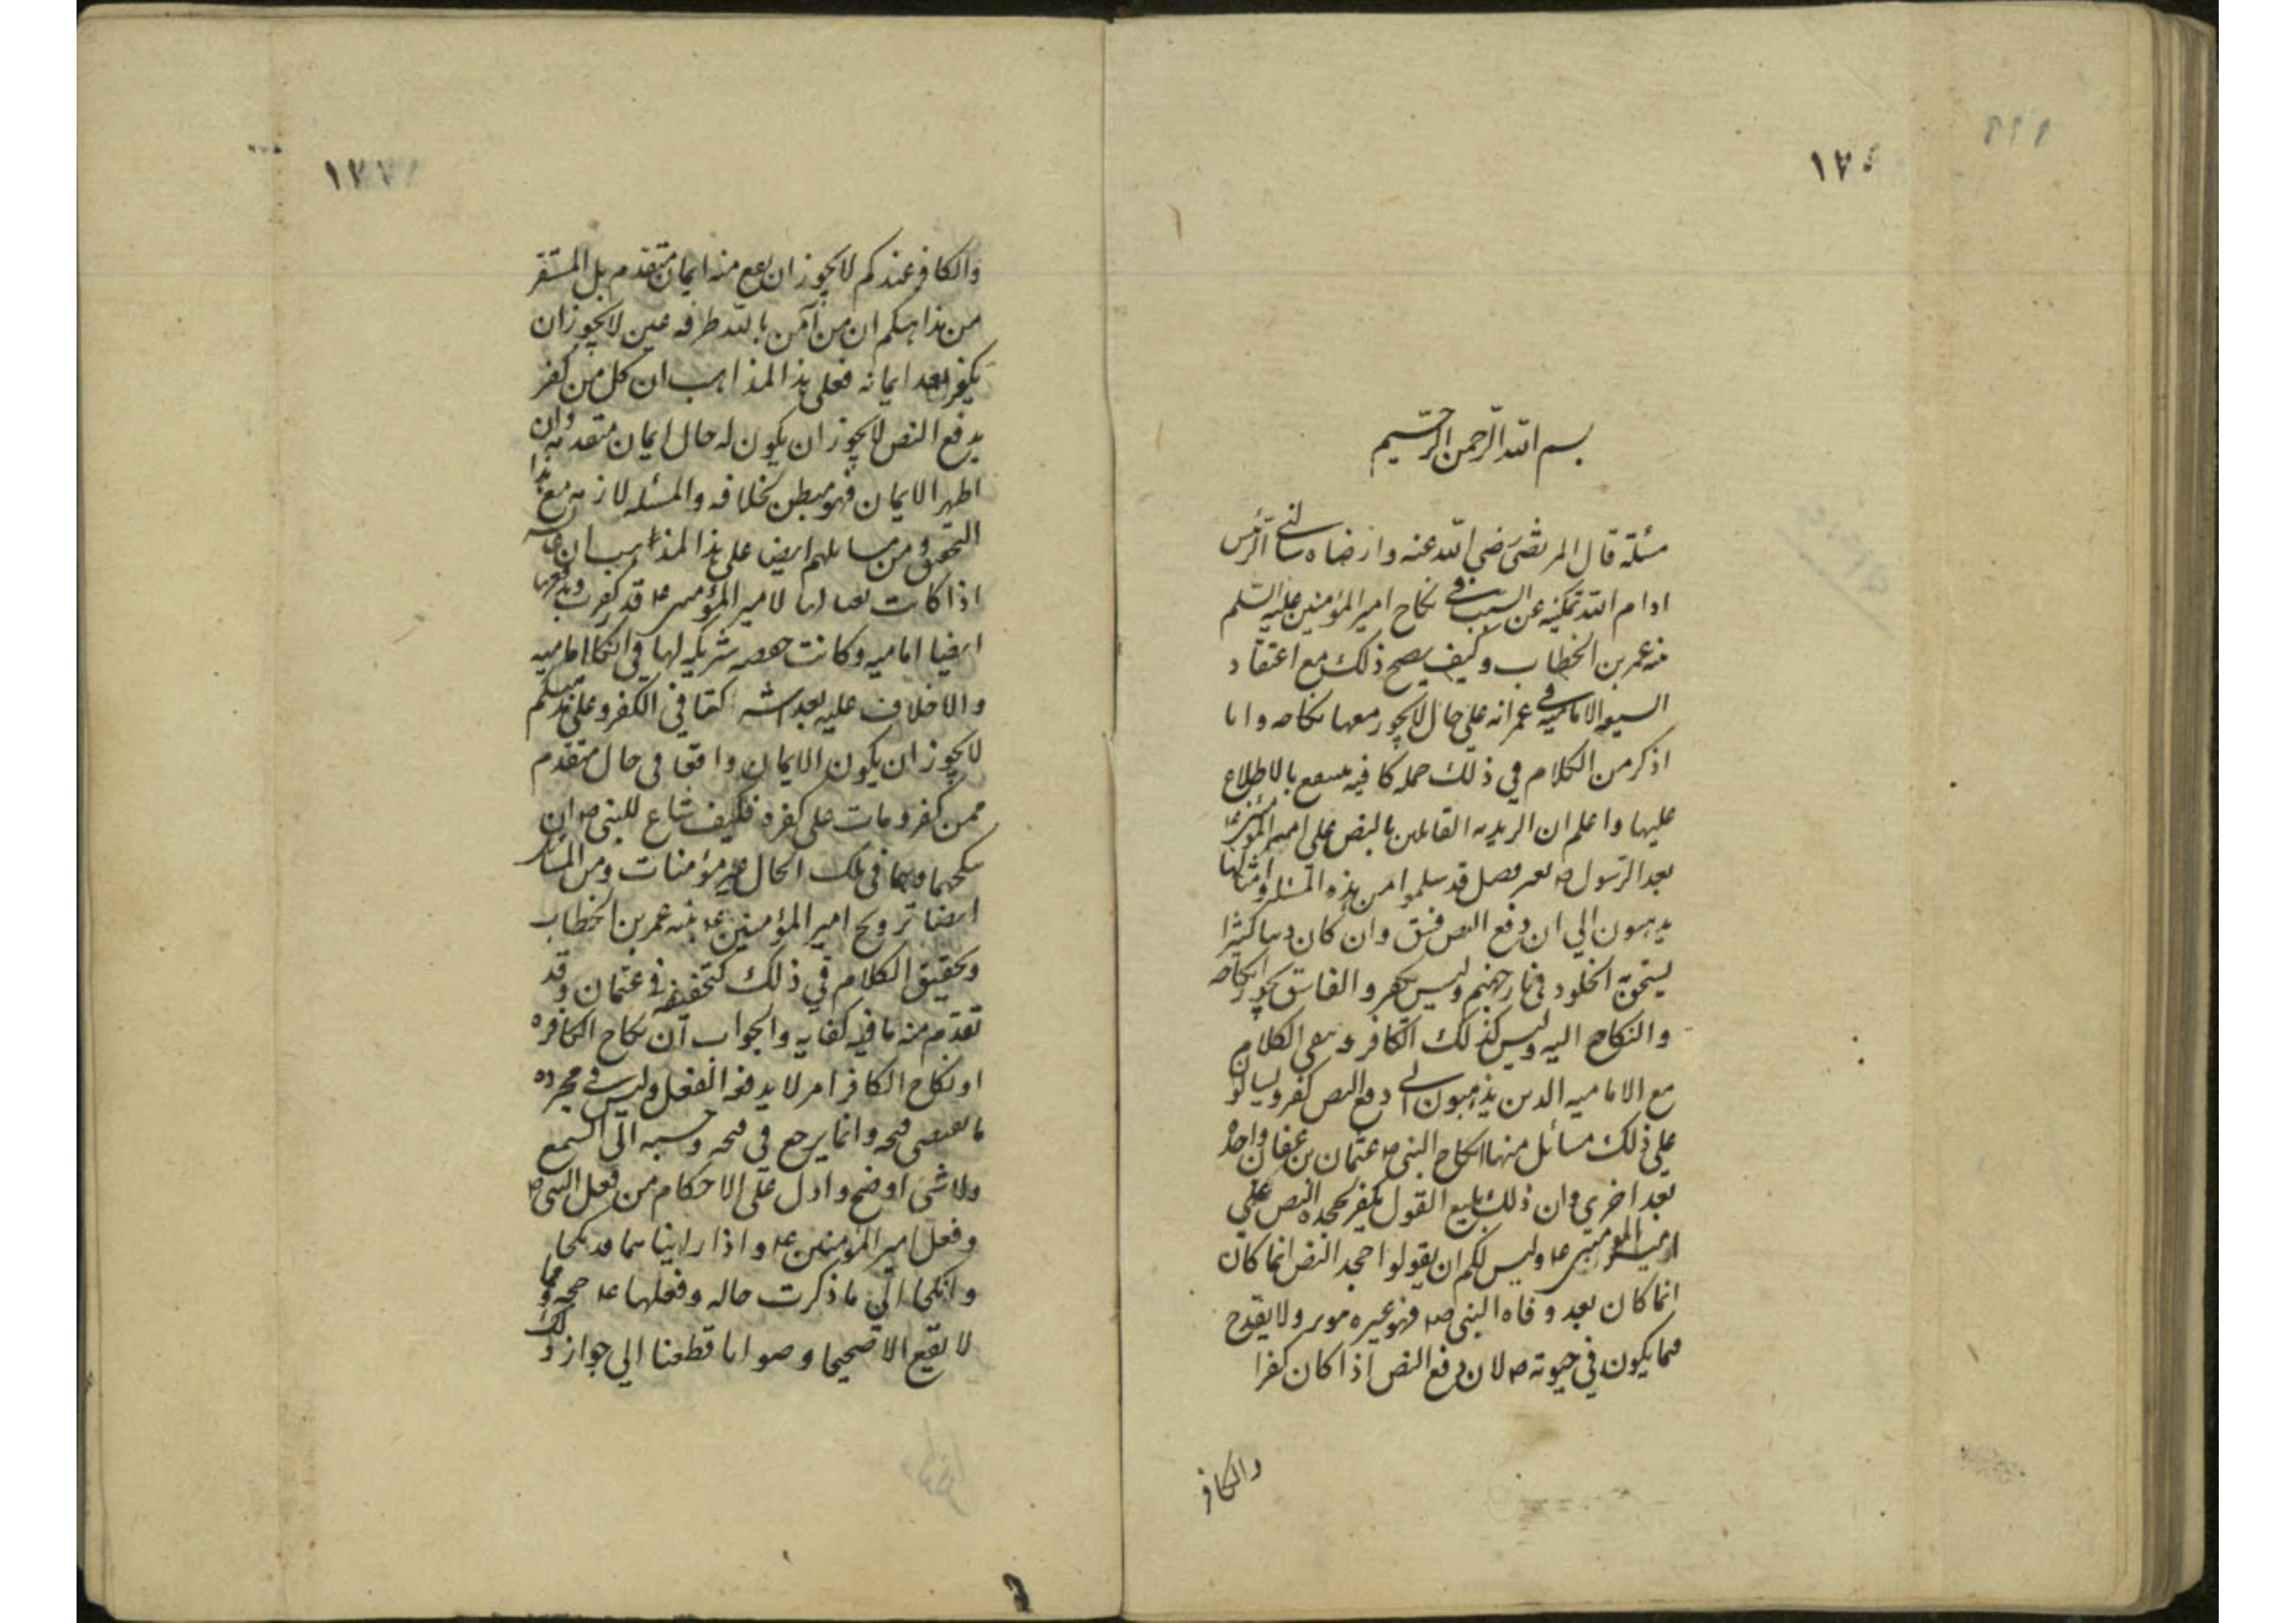 ١٧
بسم الله الرحمن الرحيم
مسئلة قال المرتضى رضي الله عنه وارضاه سالني الرئيس
ادام الله تمكينه عن السبب في نكاح امير المؤمنين عليه السلم
بنته عمر بن الخطاب وكيف يصح ذلك مع اعتقاد
الشيعه الاماميه في عمر انه على حال لا يجوز معها نكاحه وانا
اذكر من الكلام في ذلك جمله كافيه بالاطلاع
عليها واعلم ان الزيديه القائلين بالنص على امير المؤمنين ع
بعد الرسول ص بغير فصل قد سلموا من هذه المسئله وامثالها
يذهبون الي ان دفع النص فسق وان كان ذنبا كثيرا
يستحق به الخلود في نار جهنم وليس بكفر والفاسق يجوز انكاحه
والنكاح اليه وليس كذلك الكافر وبقى الكلام
مع الاماميه الذين يذهبون الى ان دفع النص كفر ويسالو
على ذلك مسائل منها انكاح النبى ص عثمان بن عفان واحدة
بعد اخرى وان ذلك يمنع القول بكفره لجحده النص على
امير المؤمنين ع وليس لكم ان يقولوا جحد النص انما كان
انما كان بعد وفاه النبى ص فهو غيره موثر ولا يقدح
فيما يكون في حيوته ص لان دفع النص اذا كان كفرا
والكافر
١٧
والكافر عندكم لا يجوز ان يقع منه ايمان متقدم بل المستقر
من مذاهبكم ان من آمن بالله طرفه عين لا يجوز ان
يكفر بعد ايمانه فعلى هذا المذاهب ان كل من كفر
بدفع النص لا يجوز ان يكون له حال ايمان متقدمه وان
اظهر الايمان فهو مبطن بخلافه والمسئله لازمه مع هذا
التحقيق ومن مسائلهم ايضا على هذا المذاهب ان عايشه
اذا كانت بقتالها لامير المؤمنين ع قد كفرت
ايضا اماميه وكانت حفصه شريكه لها في
والاخلاف عليه بعد اشتركتا في الكفر وعلى مذهبكم
لا يجوز ان يكون الايمان واقعا في حال متقدم
ممن كفر ومات على كفره فكيف ساغ للنبى ص ان
ينكحهما وهما في تلك الحال غير مؤمنات ومن المسائل
ايضا تزويج امير المؤمنين ع بنته عمر بن الخطاب
وتحقيق الكلام في ذلك كتحقيقه في عثمان وقد
تقدم منه ما فيه كفايه والجواب ان نكاح الكافره
او نكاح الكافر امر لا يدفعه العقل وليس في مجرده
ما يقتضى قبحه وانما يرجع في قبحه وحسنه الى السمع
ولا شئ اوضح وادل على الاحكام من فعل النبى ص
وفعل امير المؤمنين ع واذا رايناهما قد نكحا
وانكحا الى ما ذكرت حاله وفعلهما ع حجه ومما
لا يقع الا صحيحا وصوابا قطعنا الي جواز ذلك